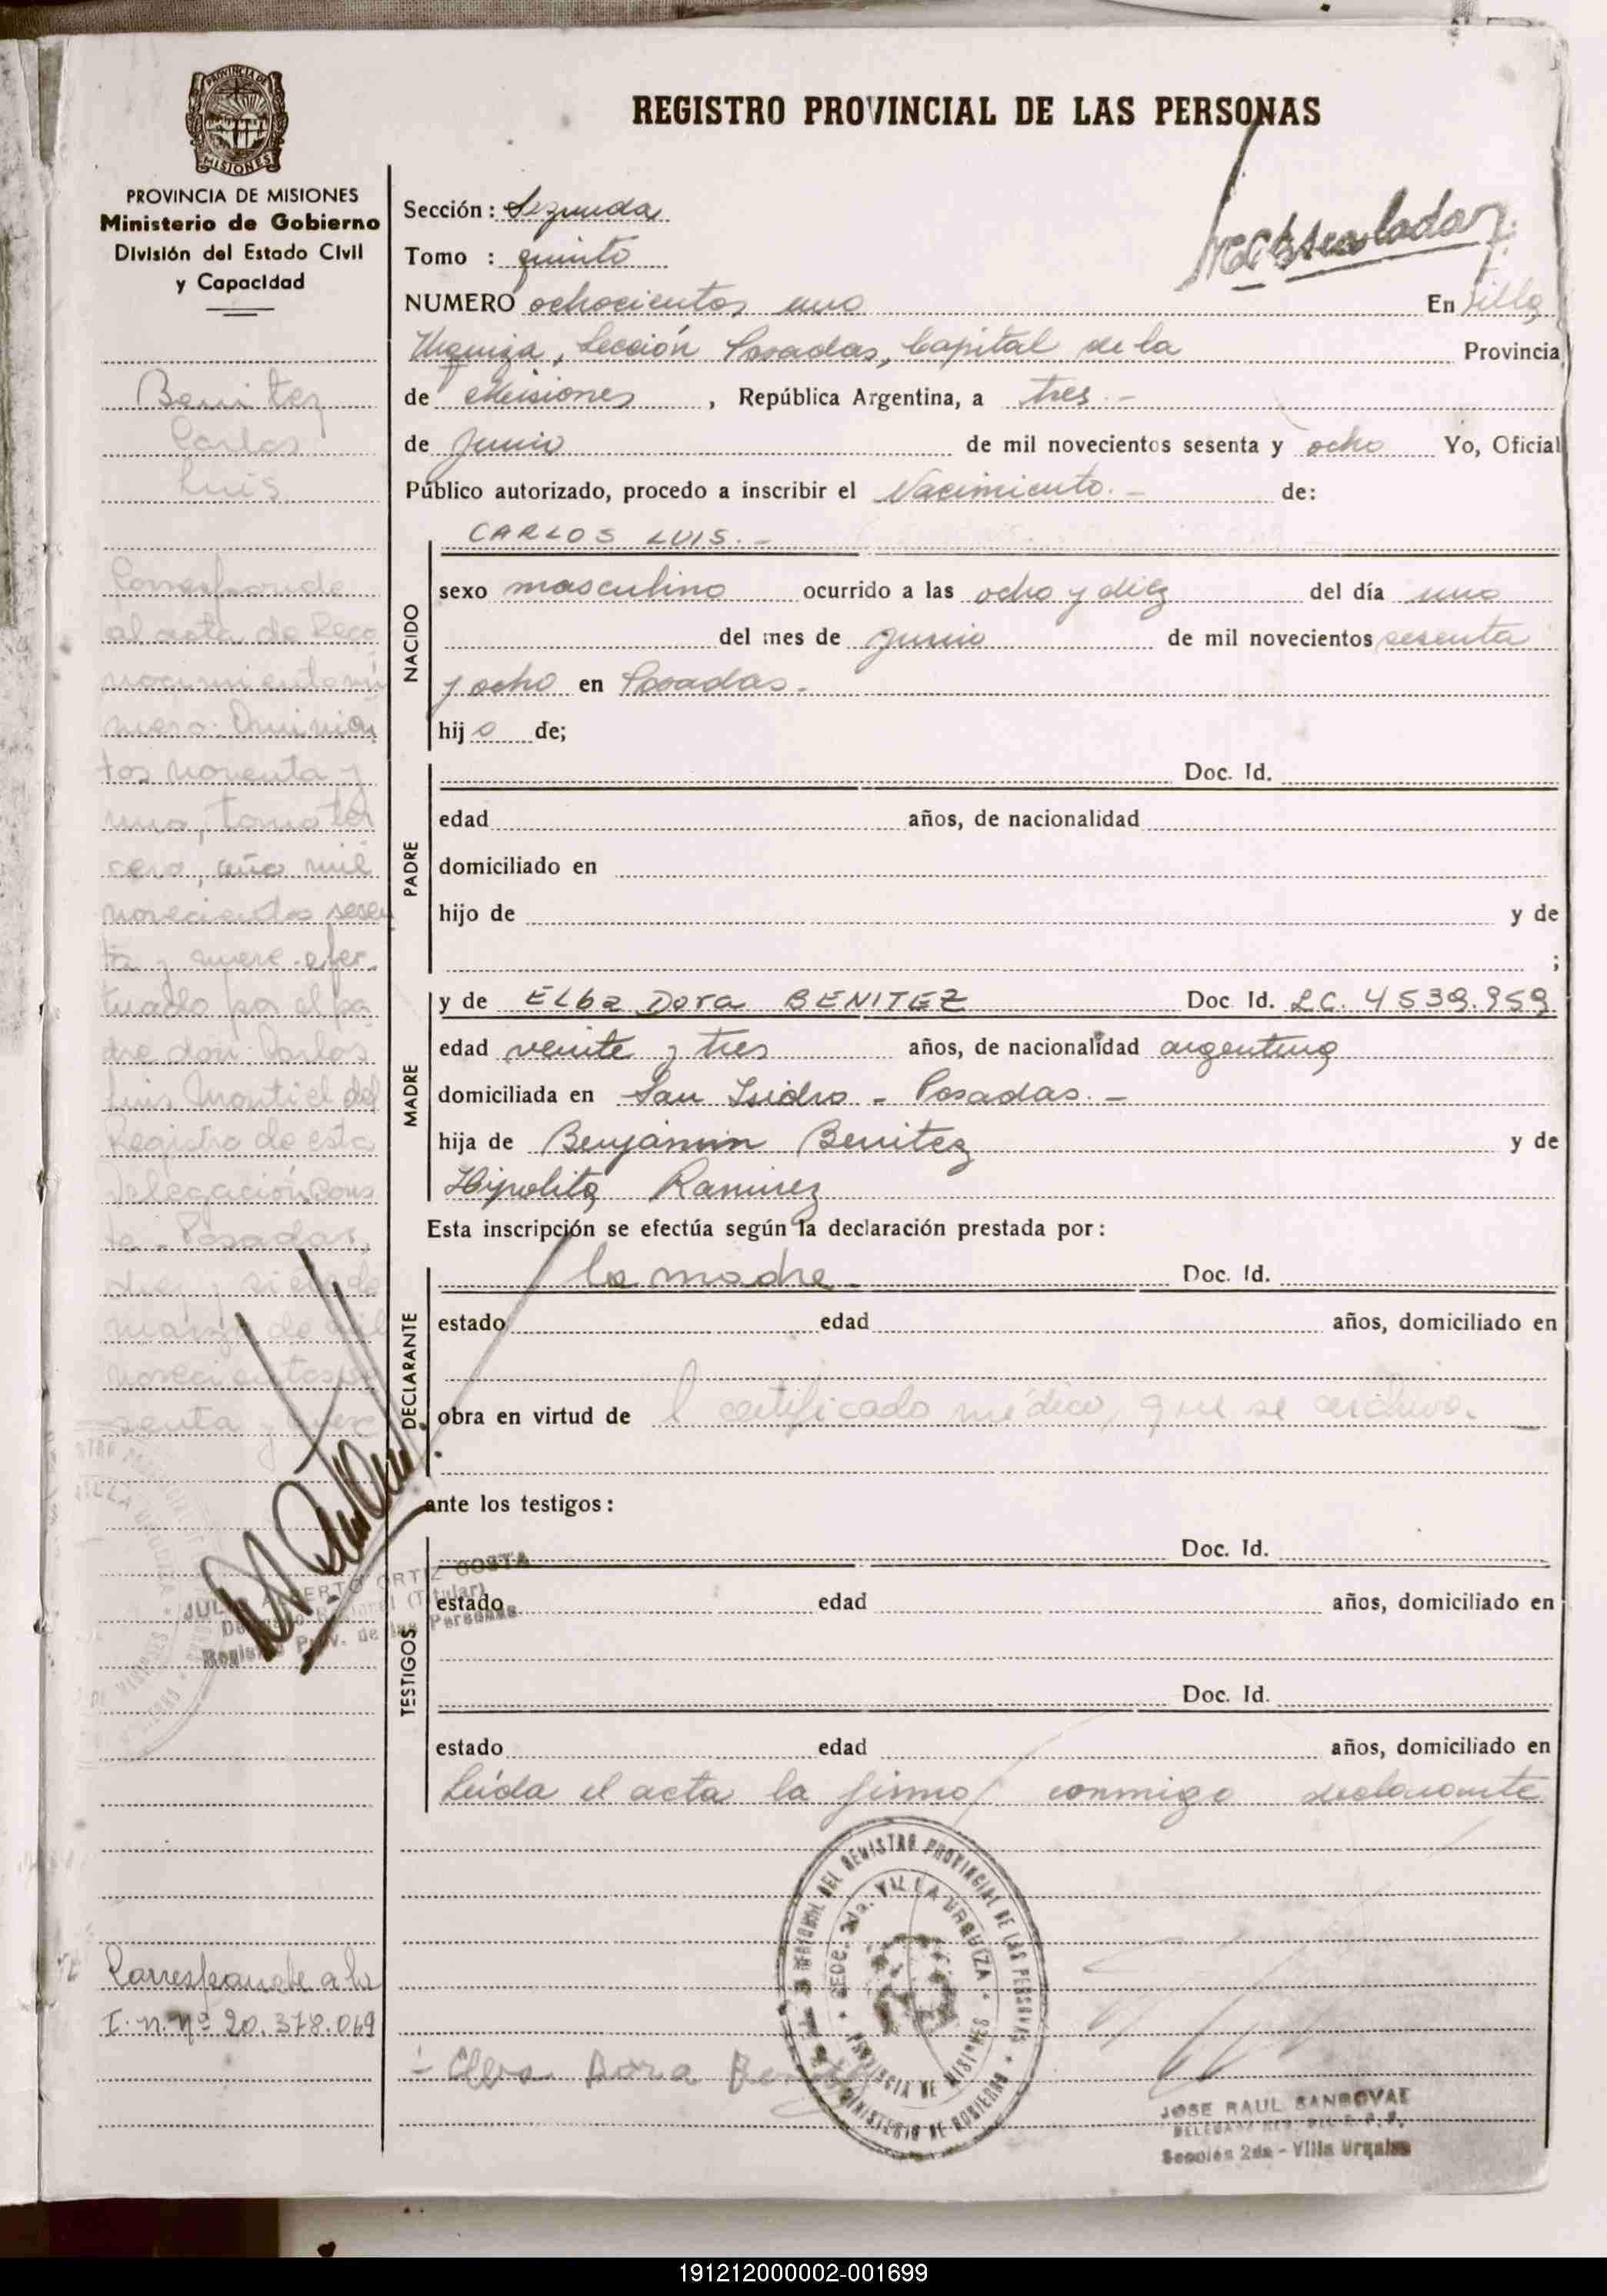 REGISTRO PROVINCIAL DE LAS PERSONAS
PROVINCIA DE MISIONES
PROVINCIA DE MISIONES
Ministerio de Gobierno
División del Estado Civil
y Capacidad
Benitez
Carlos
Luis
Corresponde
al acta de Reco
nocimiento nú
mero: Quinien
tos noventa y
uno, tomo ter
cero, año mil
novecientos sesen
ta y nueve efec-
tuado por el pa
dre don: Carlos
Luis Montiel del
Registro de esta
Delegación. Cons
te.- Posadas,
diez y siete de
marzo de mil
novecientos se
senta y nueve
JULIO ALBERTO ORTIZ COSTA
(Titular)
Registro Prov. de las Personas
Corresponde a la
I. n. nº 20.378.069
Sección: Segunda
Tomo : quinto
NUMERO ochocientos uno En Villa
Urquiza, Sección Posadas, Capital de la Provincia
de Misiones, República Argentina, a tres.-
de Junio de mil novecientos sesenta y ocho Yo, Oficial
Público autorizado, procedo a inscribir el Nacimiento.- de:
NACIDO
CARLOS LUIS.-
sexo masculino ocurrido a las ocho y diez del día uno
del mes de junio de mil novecientos sesenta
y ocho en Posadas.
hij o de;
PADRE
Doc. Id.
edad años, de nacionalidad
domiciliado en
hijo de y de
;
MADRE
y de Elba Dora BENITEZ Doc. Id. L.C. 4539.959
edad veinte y tres años, de nacionalidad argentina
domiciliada en San Isidro - Posadas.-
hija de Benjamin Benitez y de
Hipolita Ramirez
Esta inscripción se efectúa según la declaración prestada por:
DECLARANTE
la madre. Doc. Id.
estado edad años, domiciliado en
obra en virtud de l certificado médico, que se archiva.
ante los testigos:
TESTIGOS
Doc. Id.
estado edad años, domiciliado en
Doc. Id.
estado edad años, domiciliado en
Leída el acta la firma conmigo declarante
DEL REGISTRO PROVINCIAL DE LAS PERSONAS
SEDE: 2da. VILLA URQUIZA
PROVINCIA DE MISIONES
MINISTERIO DE GOBIERNO
Elva Dora Benitez
JOSE RAUL SANDOVAL
Sección 2da - Villa Urquiza
191212000002-001699